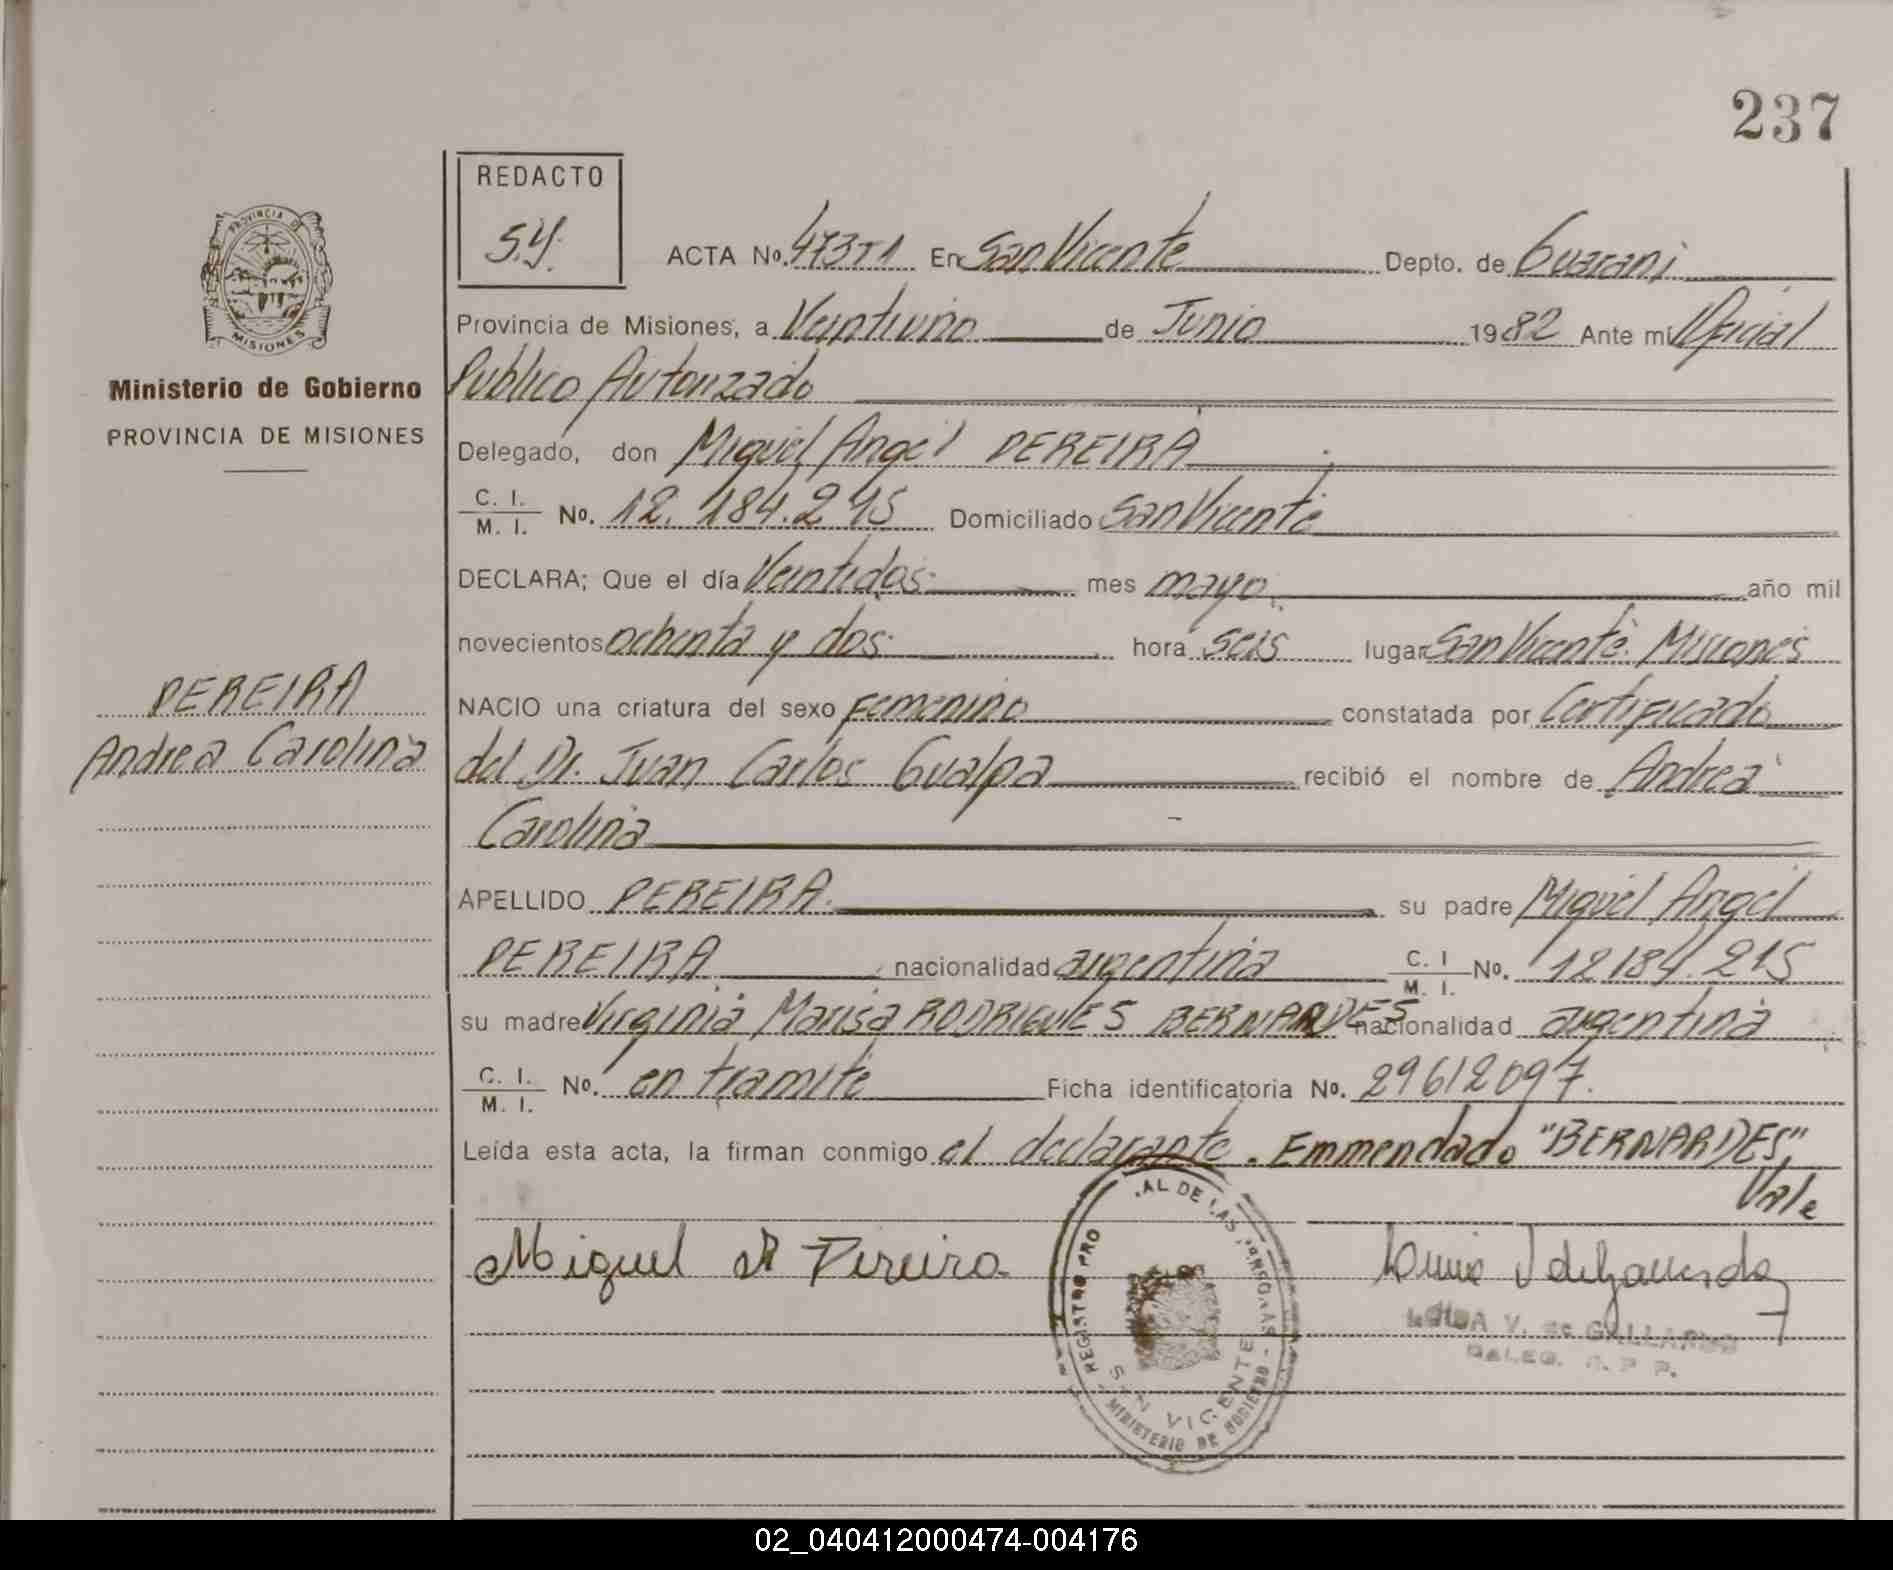 237
REDACTO
S.Y.
ACTA No. 473T1 En San Vicente Depto. de Guarani
Provincia de Misiones, a Veintiuno de Junio 1982 Ante mi Oficial
Publico Autorizado
PROVINCIA DE
MISIONES
Ministerio de Gobierno
PROVINCIA DE MISIONES
Delegado, don Miguel Angel PEREIRA
C. I.
M. I. No. 12.184.215 Domiciliado San Vicente
DECLARA; Que el día Veintidos mes mayo año mil
novecientos ochenta y dos hora seis lugar San Vicente. Misiones
PEREIRA
Andrea Carolina
NACIO una criatura del sexo femenino constatada por Certificado
del Dr. Juan Carlos Gualpa recibió el nombre de Andrea
Carolina
APELLIDO PEREIRA su padre Miguel Angel
PEREIRA nacionalidad argentina C. I
M. I. No. 12184.215
su madre Virginia Marisa RODRIGUES BERNARDES nacionalidad argentina
C. I.
M. I. No. en tramite Ficha identificatoria No. 29612097.
Leída esta acta, la firman conmigo el declarante. Emmendado "BERNARDES"
Vale
Miguel A Pereira
REGISTRO PRO AL DE LAS PERSONAS
SAN VICENTE
MINISTERIO DE GOBIERNO
V. de GALLARDO
DELEG. R. P. P.
02_040412000474-004176